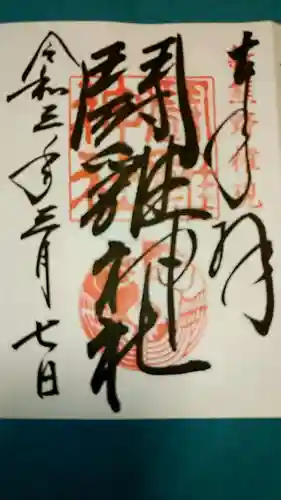 奉拝
闘雞神社
令和三年三月七日